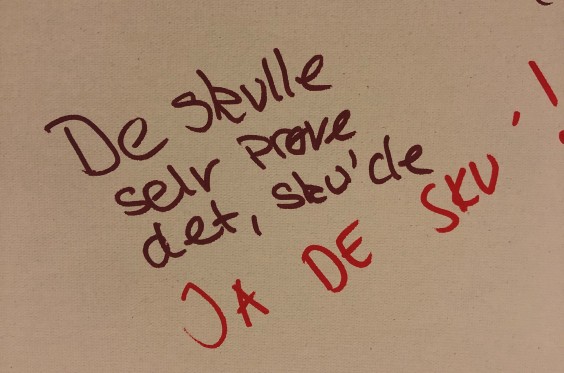 De skulle
selv prøve
det, sku'de
JA DE SKU'!